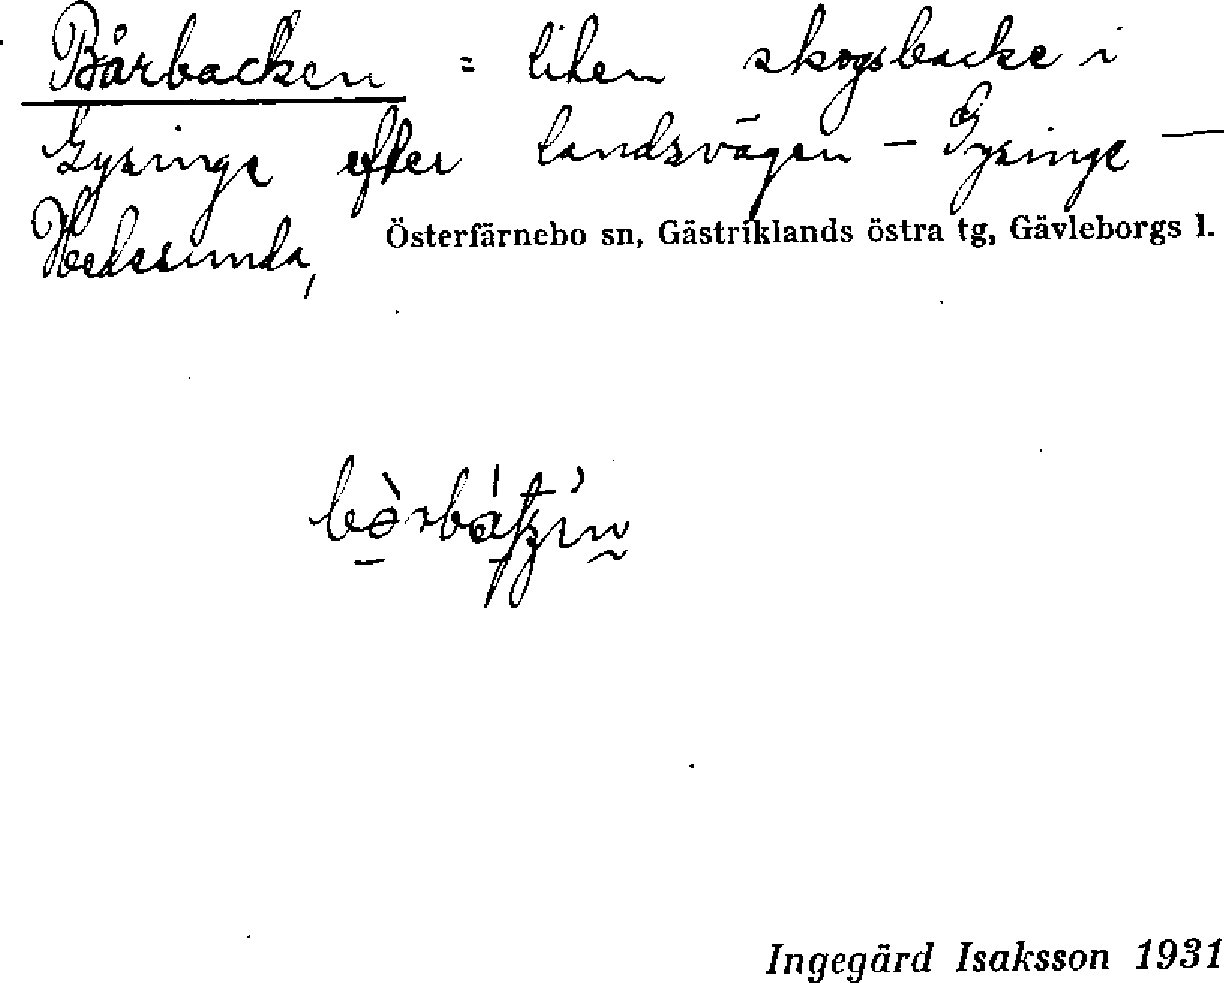 Bårbacken = liten skogsbacke i
Gysinge efter landsvägen – Gysinge –
Hedesunda,
Österfärnebo sn, Gästriklands östra tg, Gävleborgs l.
Ingegärd Isaksson 1931